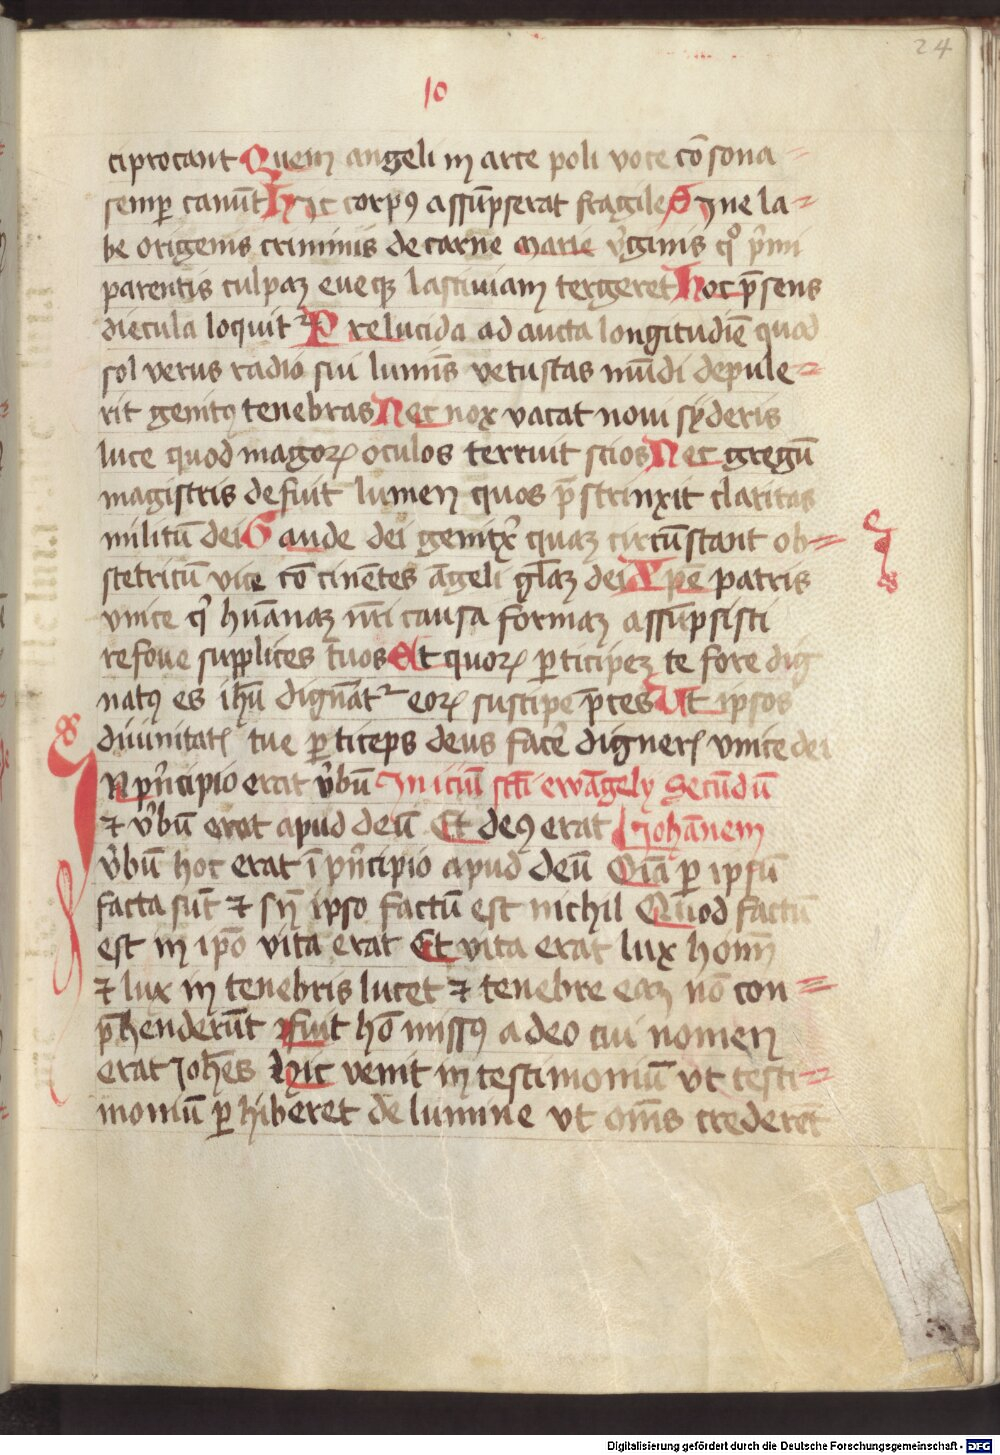 24
10
ciprocant Quem angeli in arce poli voce cōsona
semꝑ canūt Hic corpꝰ assūpserat fragile Sine la=
be origenis criminis de carne marie v̓ginis qͦ pͥmi
parentis culpaȝ eueqȝ lasciuiam tergeret Hoc p̄sens
diecula loquit᷑ Prelucida ad aucta longitudiē quod
sol verus radio sui lumīs vetustas mūdi depule=
rit genitꝰ tenebras Nec nox vacat noui syderis
luce quod magoꝝ oculos terruit scios Nec gregū
magistris defuit lumen quos p̄strinxit claritas
militū dei Gaude dei genitx̓ quaȝ circūstant ob=
stetricū vice cōcinētes āgeli glāȝ dei Xp̄e patris
vnice qͥ hūanaȝ nr̄i causa formaȝ assūpsisti
refoue supplices tuos Et quoꝝ ꝑticipeȝ te fore dig
natꝰ es ihū dignāt᷑ eoꝝ suscipe p̄ces Ut ipsos
diuinitatꝭ tue ꝑticeps deus facē dignerꝭ vnice dei
IN pͥncipio erat v̓bū Iniciū sc̄ti ewāgely Secūdū
⁊ v̓bū erat apud deū Et deꝰ erat Johānem
v̓bū hoc erat ī pͥncipio apud deū Oīa ꝑ ipsū
facta sūt ⁊ sn̄ ipso factū est nichil Quod factū
est in ip̄o vita erat Et vita erat lux homī
⁊ lux in tenebris lucet ⁊ tenebre eaȝ nō con=
p̄henderūt Fuit hō missꝰ a deo cui nomen
erat Johēs Hic venit in testimoniū vt testi=
moniū ꝑhiberet de lumine vt om̄s crederēt
Digitalisierung gefördert durch die Deutsche Forschungsgemeinschaft - DFG